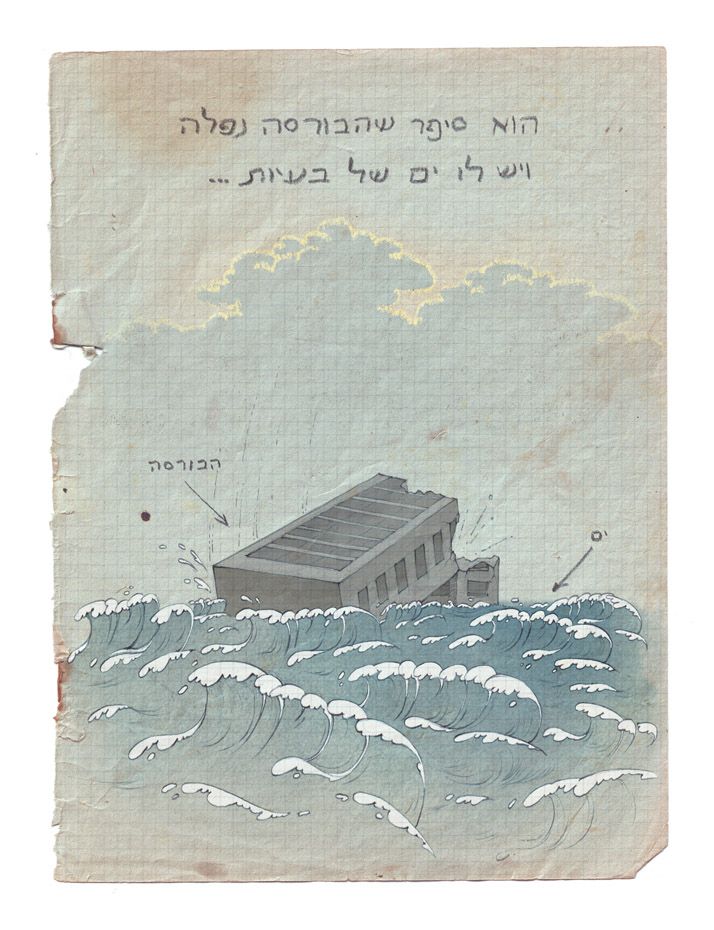 הוא סיפר שהבורסה נפלה
ויש לו ים של בעיות...
הבורסה
ים